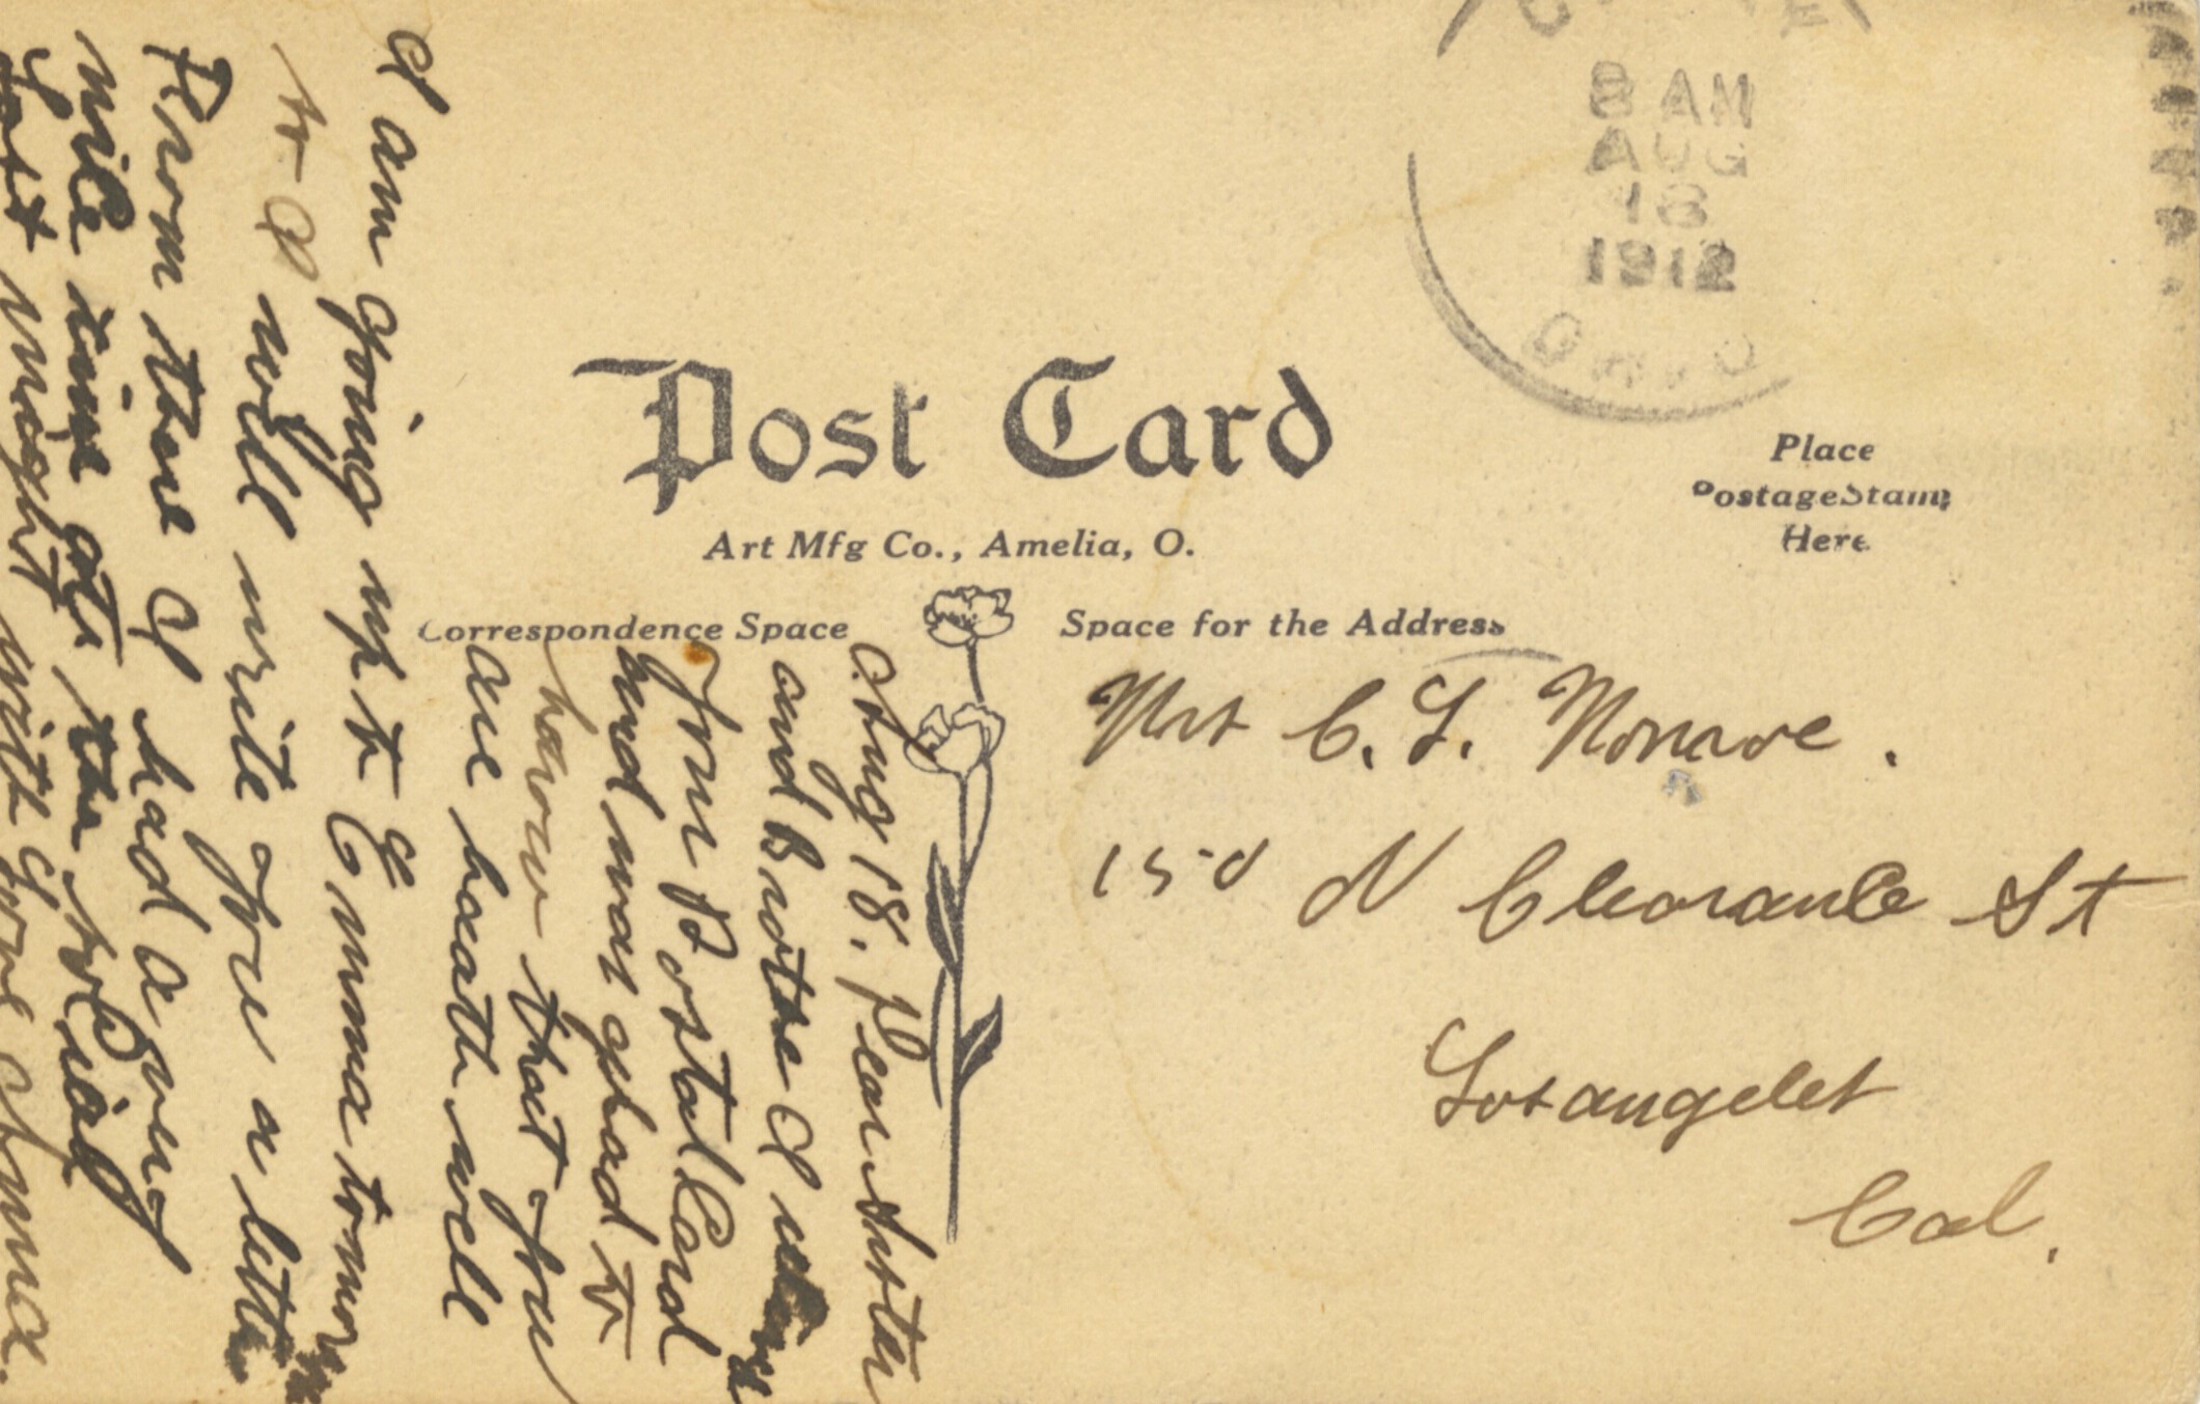 8 AM
AUG
18
1912
OHIO
Post Card
Art Mfg Co., Amelia, O.
Place
Postage Stamp
Here
Correspondence Space
Space for the Address
Mrs C. L. Monroe.
150 N Clearance St
Losangeles
Cal.
Aug 18. Dear Sister
and Brother I
your Postal Card
and was glad to
know that you
are heath well
I am going up to Emma
to I will write you a letter
From there I had a very
nice time
Last might with Love Anna.